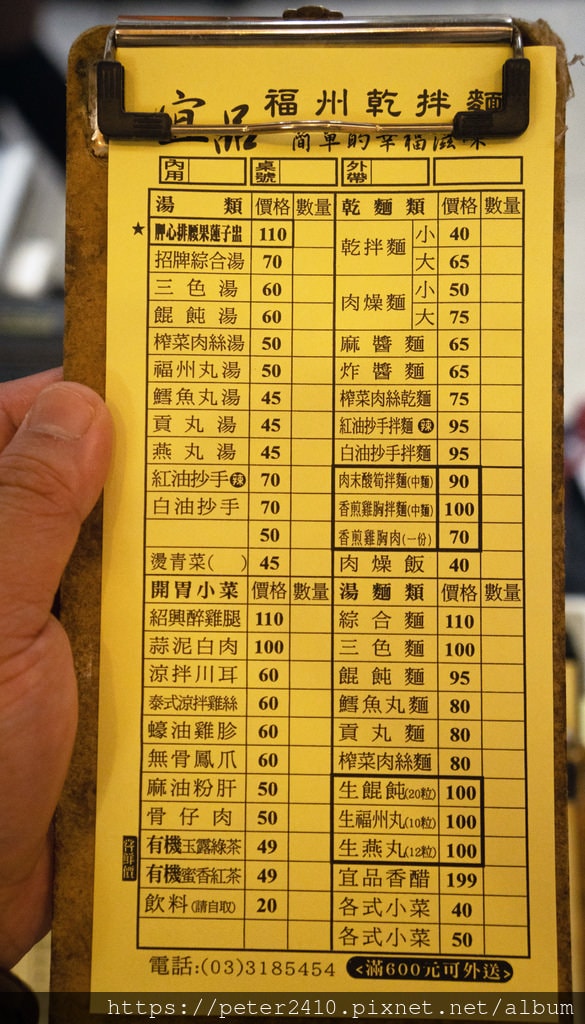 宜品 福州乾拌麵
簡單的幸福滋味
內用 桌號 外帶
湯類 價格 數量
★ 脾心排腰果蓮子盅 110
招牌綜合湯 70
三色湯 60
餛飩湯 60
榨菜肉絲湯 50
福州丸湯 50
鱈魚丸湯 45
貢丸湯 45
燕丸湯 45
紅油抄手辣 70
白油抄手 70
50
燙青菜( ) 45
開胃小菜 價格 數量
紹興醉雞腿 110
蒜泥白肉 100
涼拌川耳 60
泰式涼拌雞絲 60
蠔油雞胗 60
無骨鳳爪 60
麻油粉肝 50
骨仔肉 50
有機玉露綠茶 49
有機蜜香紅茶 49
飲料(請自取) 20
乾麵類 價格 數量
乾拌麵 小 40
大 65
肉燥麵 小 50
大 75
麻醬麵 65
炸醬麵 65
榨菜肉絲乾麵 75
紅油抄手拌麵辣 95
白油抄手拌麵 95
肉末酸筍拌麵(中麵) 90
香煎雞胸拌麵(中麵) 100
香煎雞胸肉(一份) 70
肉燥飯 40
湯麵類 價格 數量
綜合麵 110
三色麵 100
餛飩麵 95
鱈魚丸麵 80
貢丸麵 80
榨菜肉絲麵 80
生餛飩(20粒) 100
生福州丸(10粒) 100
生燕丸(12粒) 100
宜品香醋 199
各式小菜 40
各式小菜 50
電話:(03)3185454 <滿600元可外送>
https://peter2410.pixnet.net/album